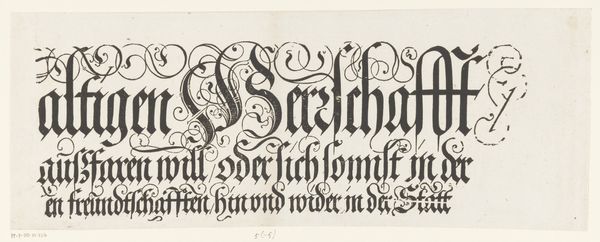 altigen Herrschafft /
außfaren will / oder sich sonnst in der
en freundtschafften / hin vnd wider in der Statt